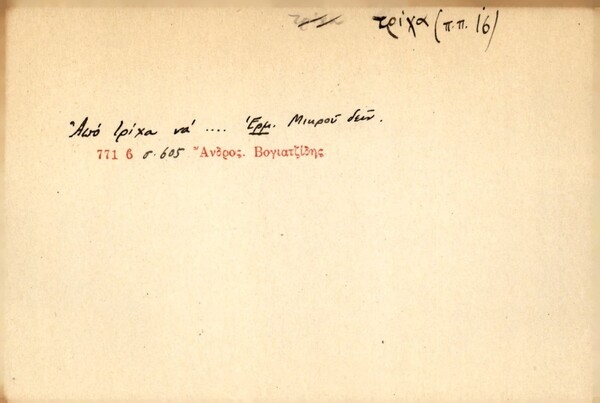 τρίχα (π.π. 16)
Ἀπό τρίχα νά .... Ἑρμ. Μικροῦ δεῖν.
771 6 σ. 605 Ἄνδρος. Βογιατζίδης